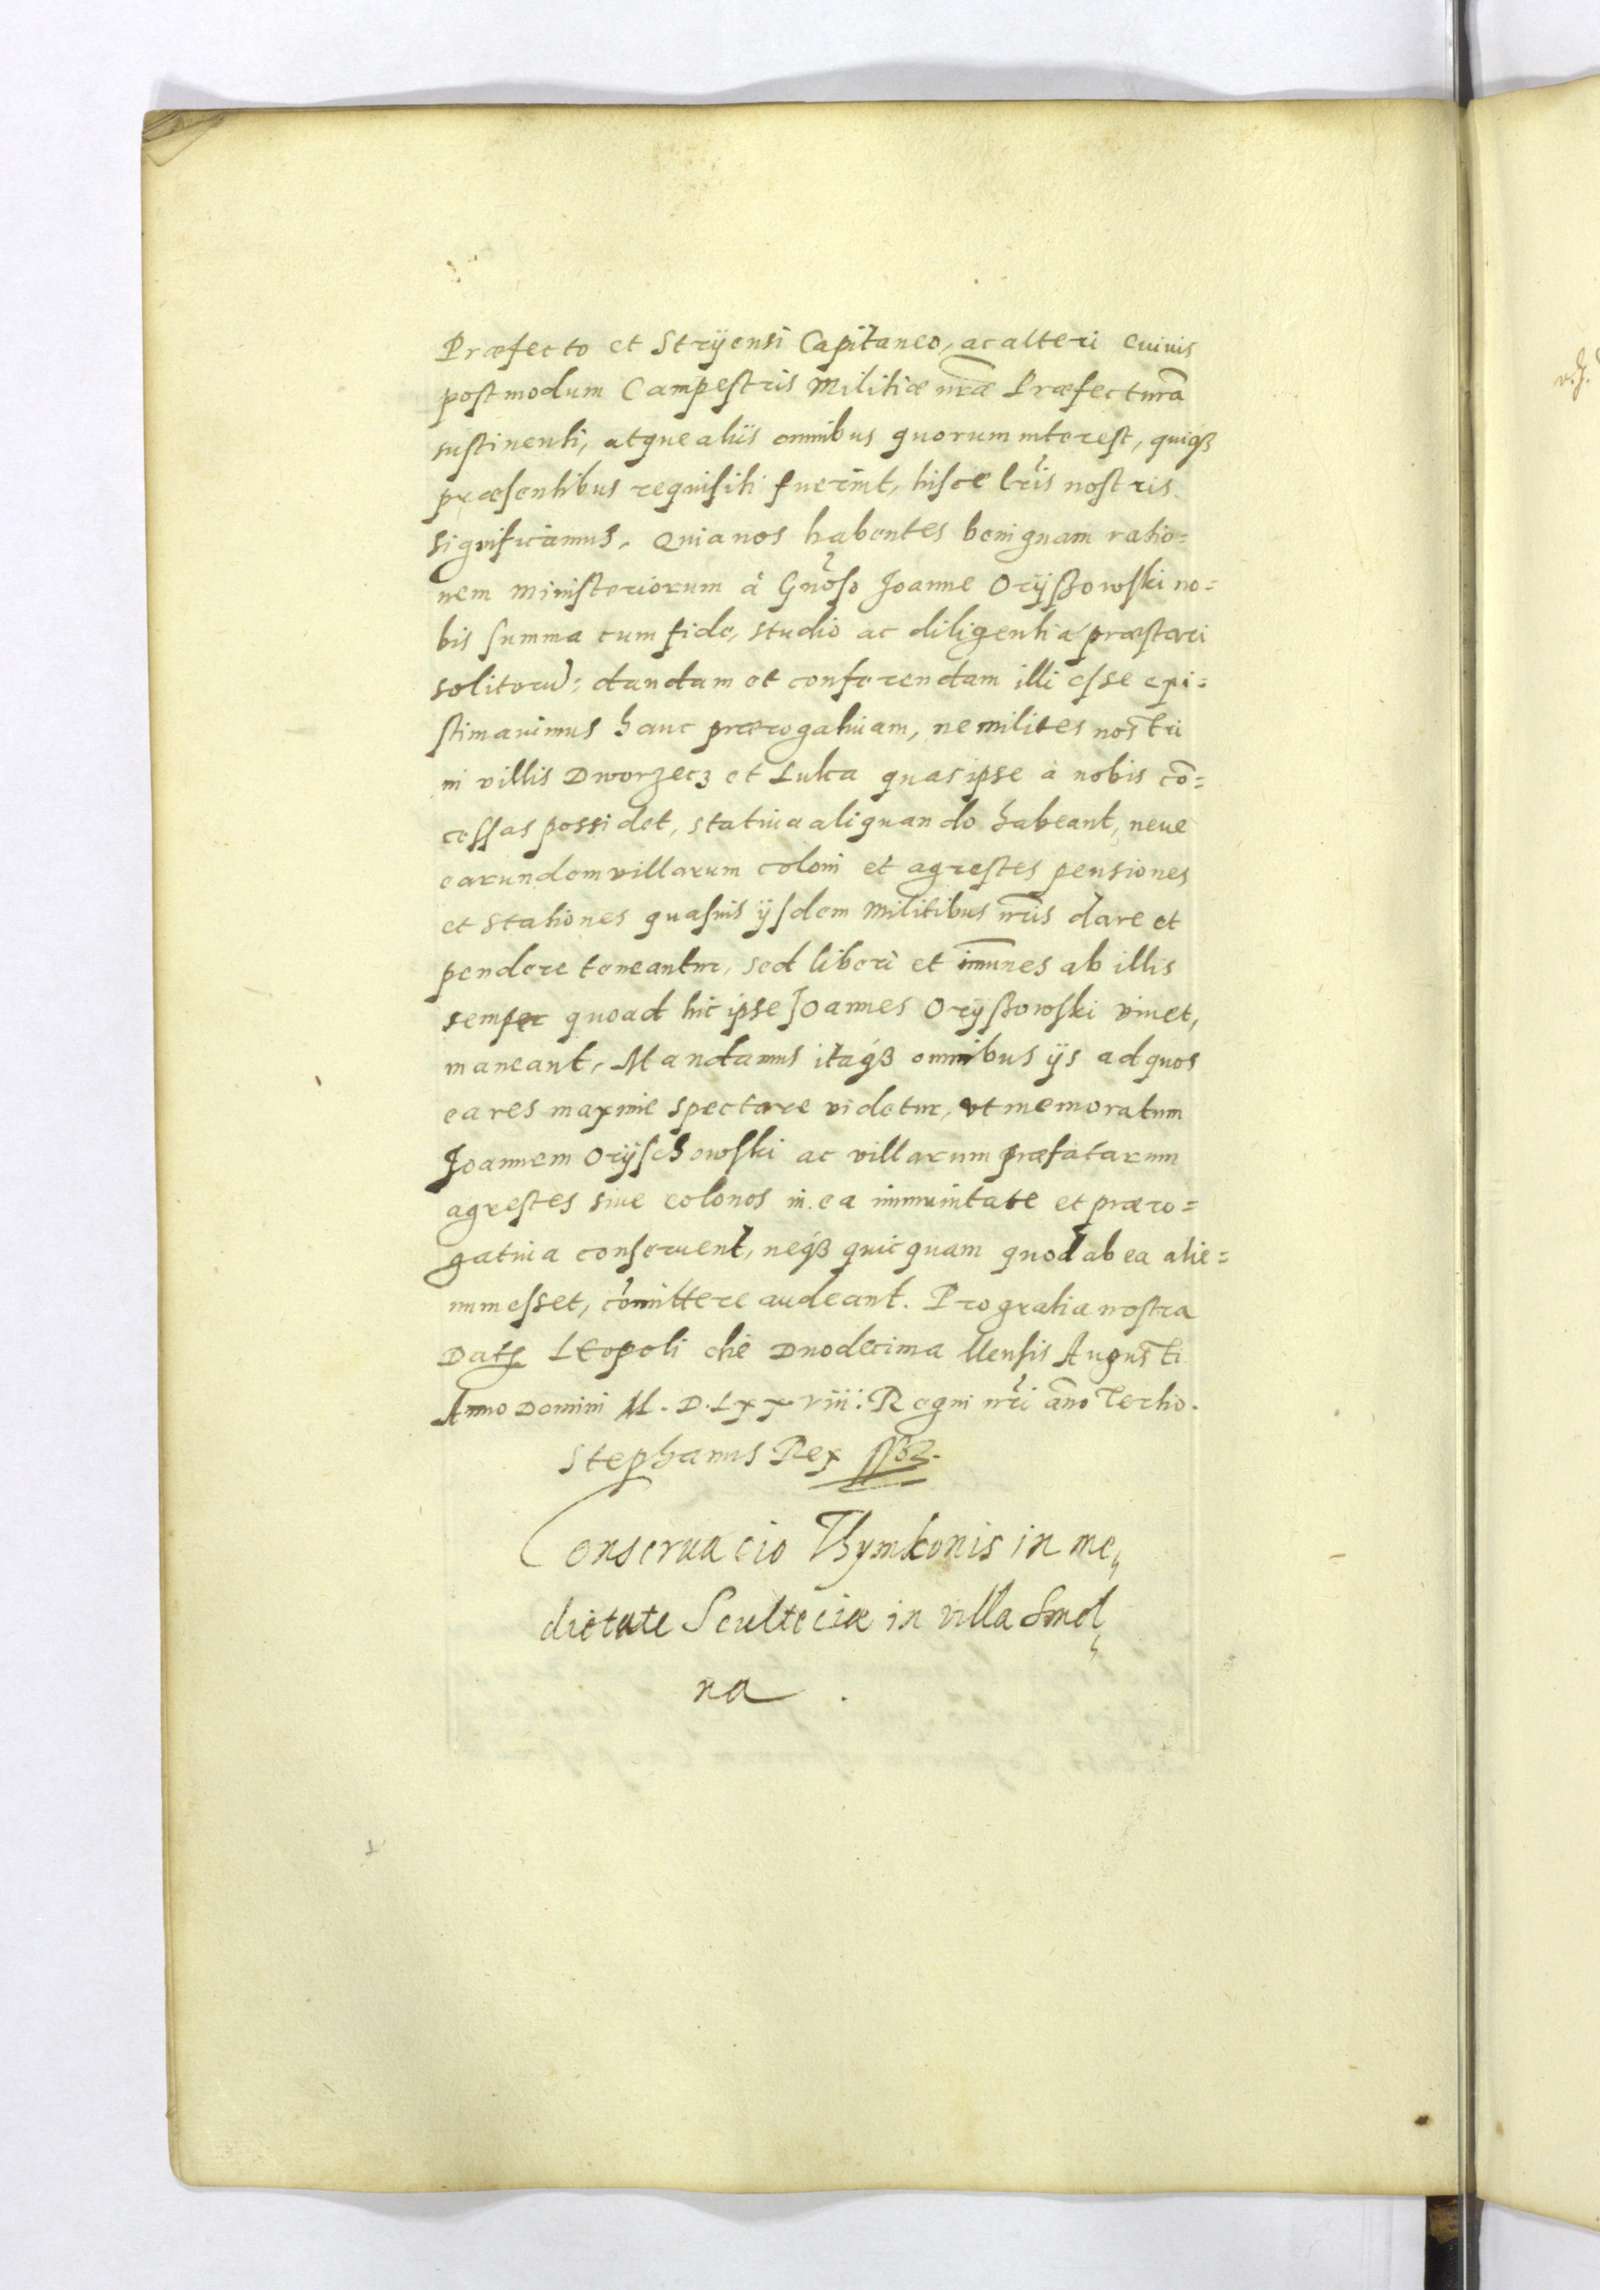 Præfecto et Stryensi Capitaneo, ac alteri cuiuis
postmodum Campestris Militiæ nræ Præfecturã
sustinenti, atque aliis omnibus quorum interest, quiqȝ
præsentibus requisiti fuerint, hisce lris nostris
significamus. Quia nos habentes benignam ratio=
nem ministeriorum à Gnoso Joanne Oryßowski no=
bis summa cum fide, studio ac diligentia præstari
solitorũ: dandam et conferendam illi esse exi=
stimauimus hanc prærogatiuam, ne milites nostri
in villis Dworzecz et Luka quas ipse à nobis cõ=
cessas possidet, statiua aliquando habeant, neue
earundem villarum coloni et agrestes pensiones
et stationes quasuis ijsdem Militibus nris dare et
pendere teneantur, sed liberi et imunes ab illis
semper quoad hic ipse Joannes Oryßowski viuet,
maneant. Mandamus itaqȝ omnibus ijs ad quos
ea res maxime spectare videtur, vt memoratum
Joannem Oryschowski ac villarum præfatarum
agrestes siue colonos in ea immunitate et præro=
gatiua conseruent, neqȝ quicquam quod ab ea alie=
num esset, comittere audeant. Pro gratia nostra
Dat Leopoli die Duodecima Mensis Augusti
Anno Domini M.D.Lxxviii: Regni nri ãno Tertio.
Stephanus Rex
Conseruacio Thymkonis in me„
dietate Scultetiæ in villa Smol„
na .